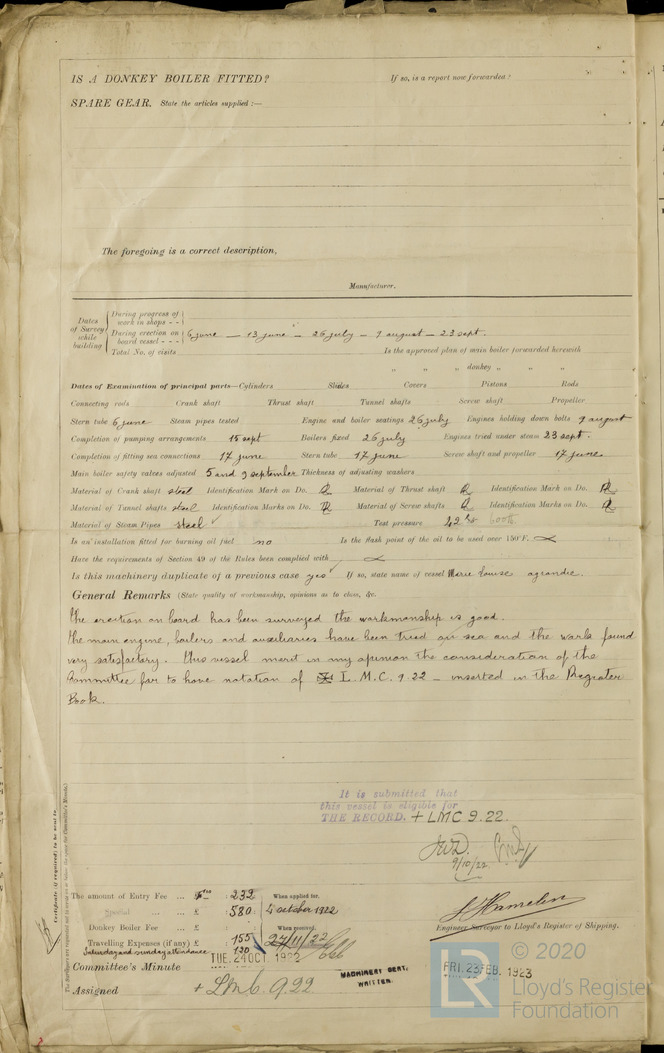 IS A DONKEY BOILER FITTED? If so, is a report now forwarded?
SPARE GEAR. State the articles supplied :—
The foregoing is a correct description,
Manufacturer.
Dates of Survey while building
During progress of work in shops - -
During erection on board vessel - - - 6 june — 13 june — 26 july — 9 august — 23 sept.
Total No. of visits Is the approved plan of main boiler forwarded herewith
" " " donkey " " "
Dates of Examination of principal parts—Cylinders Slides Covers Pistons Rods
Connecting rods Crank shaft Thrust shaft Tunnel shafts Screw shaft Propeller
Stern tube 6 june Steam pipes tested Engine and boiler seatings 26 july Engines holding down bolts 9 august
Completion of pumping arrangements 15 sept Boilers fixed 26 july Engines tried under steam 23 sept.
Completion of fitting sea connections 17 june Stern tube 17 june Screw shaft and propeller 17 june
Main boiler safety valves adjusted 5 and 9 september Thickness of adjusting washers
Material of Crank shaft steel Identification Mark on Do. Material of Thrust shaft Identification Mark on Do.
Material of Tunnel shafts steel Identification Marks on Do. Material of Screw shafts Identification Marks on Do.
Material of Steam Pipes steel Test pressure 600 lb
Is an installation fitted for burning oil fuel no Is the flash point of the oil to be used over 150°F.
Have the requirements of Section 49 of the Rules been complied with
Is this machinery duplicate of a previous case yes If so, state name of vessel Marie Louise
General Remarks (State quality of workmanship, opinions as to class, &c.
the erection on board has been surveyed the workmanship is good.
the main engine, boilers and auxiliaries have been tried on sea and the work found
very satisfactory. this vessel merit in my opinion the consideration of the
Committee for to have notation of L.M.C. 9.22 — inserted in the Register
Book.
It is submitted that
this vessel is eligible for
THE RECORD. + LMC 9.22.
9/10/22
Certificate (if required) to be sent to
The amount of Entry Fee ... 232 When applied for.
Special ... £ 580 4 october 1922
Donkey Boiler Fee ... £ When received.
Travelling Expenses (if any) £ 155 27/11/22
Saturday and sunday attendance 130
J. Hamelin
Engineer Surveyor to Lloyd's Register of Shipping.
Committee's Minute TUE. 24 OCT. 1922 FRI. 23 FEB. 1923
Assigned + LMC. 9.22
MACHINERY CERT.
WRITTEN.
© 2020
LR
Lloyd's Register
Foundation